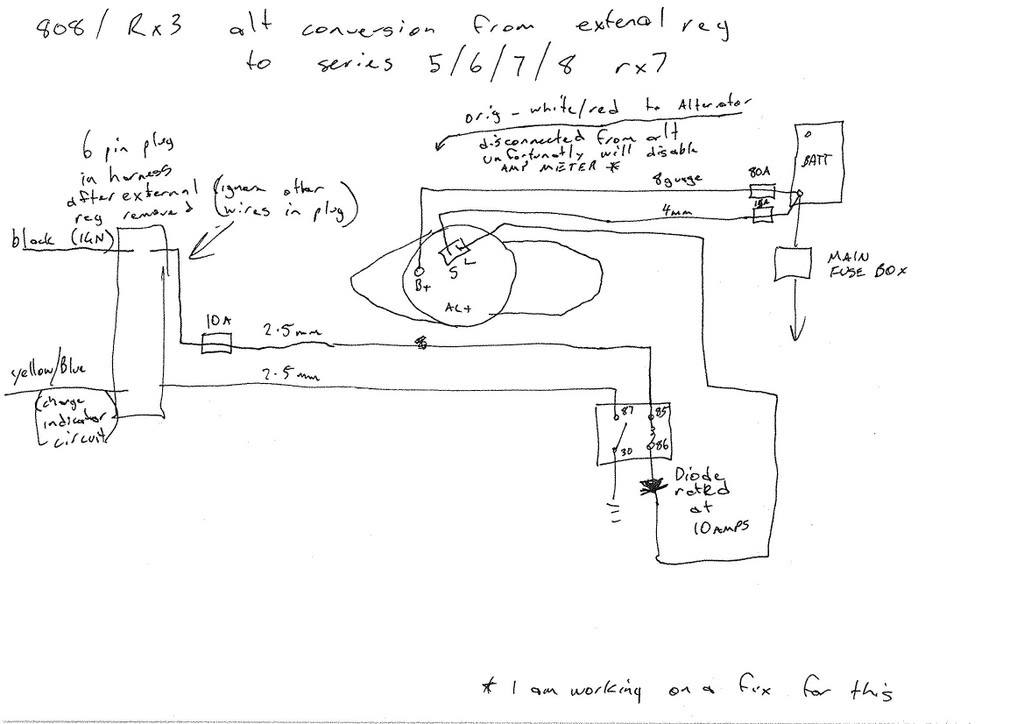 808/ Rx3 alt conversion from extenal reg
to series 5/6/7/8 rx7
orig - white/red to Alternator
disconnected from alt
unfortunatly will disable
AMP METER *
6 pin plug
in harness
after external
reg removed
(ignore other
wires in plug)
block (IGN)
8 guage
80A
BATT
4mm
MAIN
FUSE BOX
S L
B+
ALT
10A
2.5mm
yellow/Blue
2.5mm
(charge
indicator
circuit)
87 85
30 86
Diode
rated
at
10 AMPS
* I am working on a fix for this